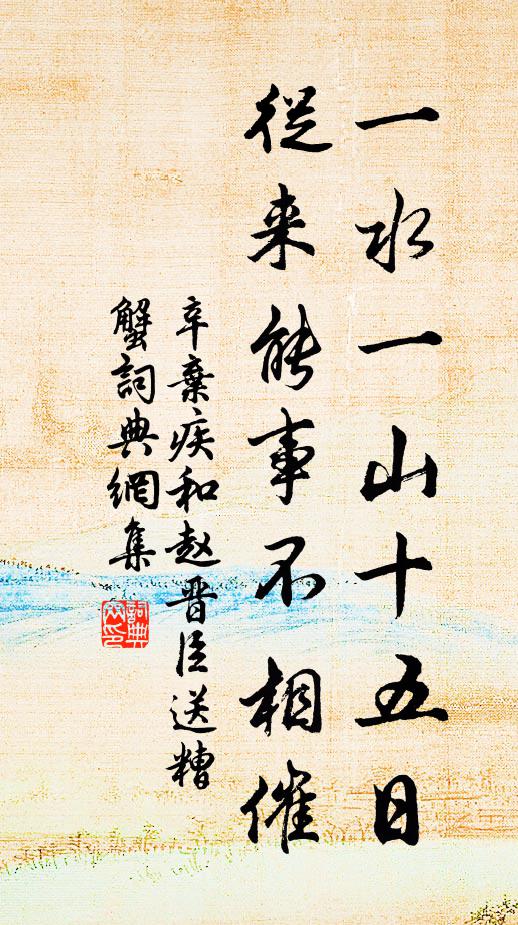 一水一山十五日
從来能事不相催
辛棄疾和赵晋臣送糟
蟹詞典網集
詞典
网印